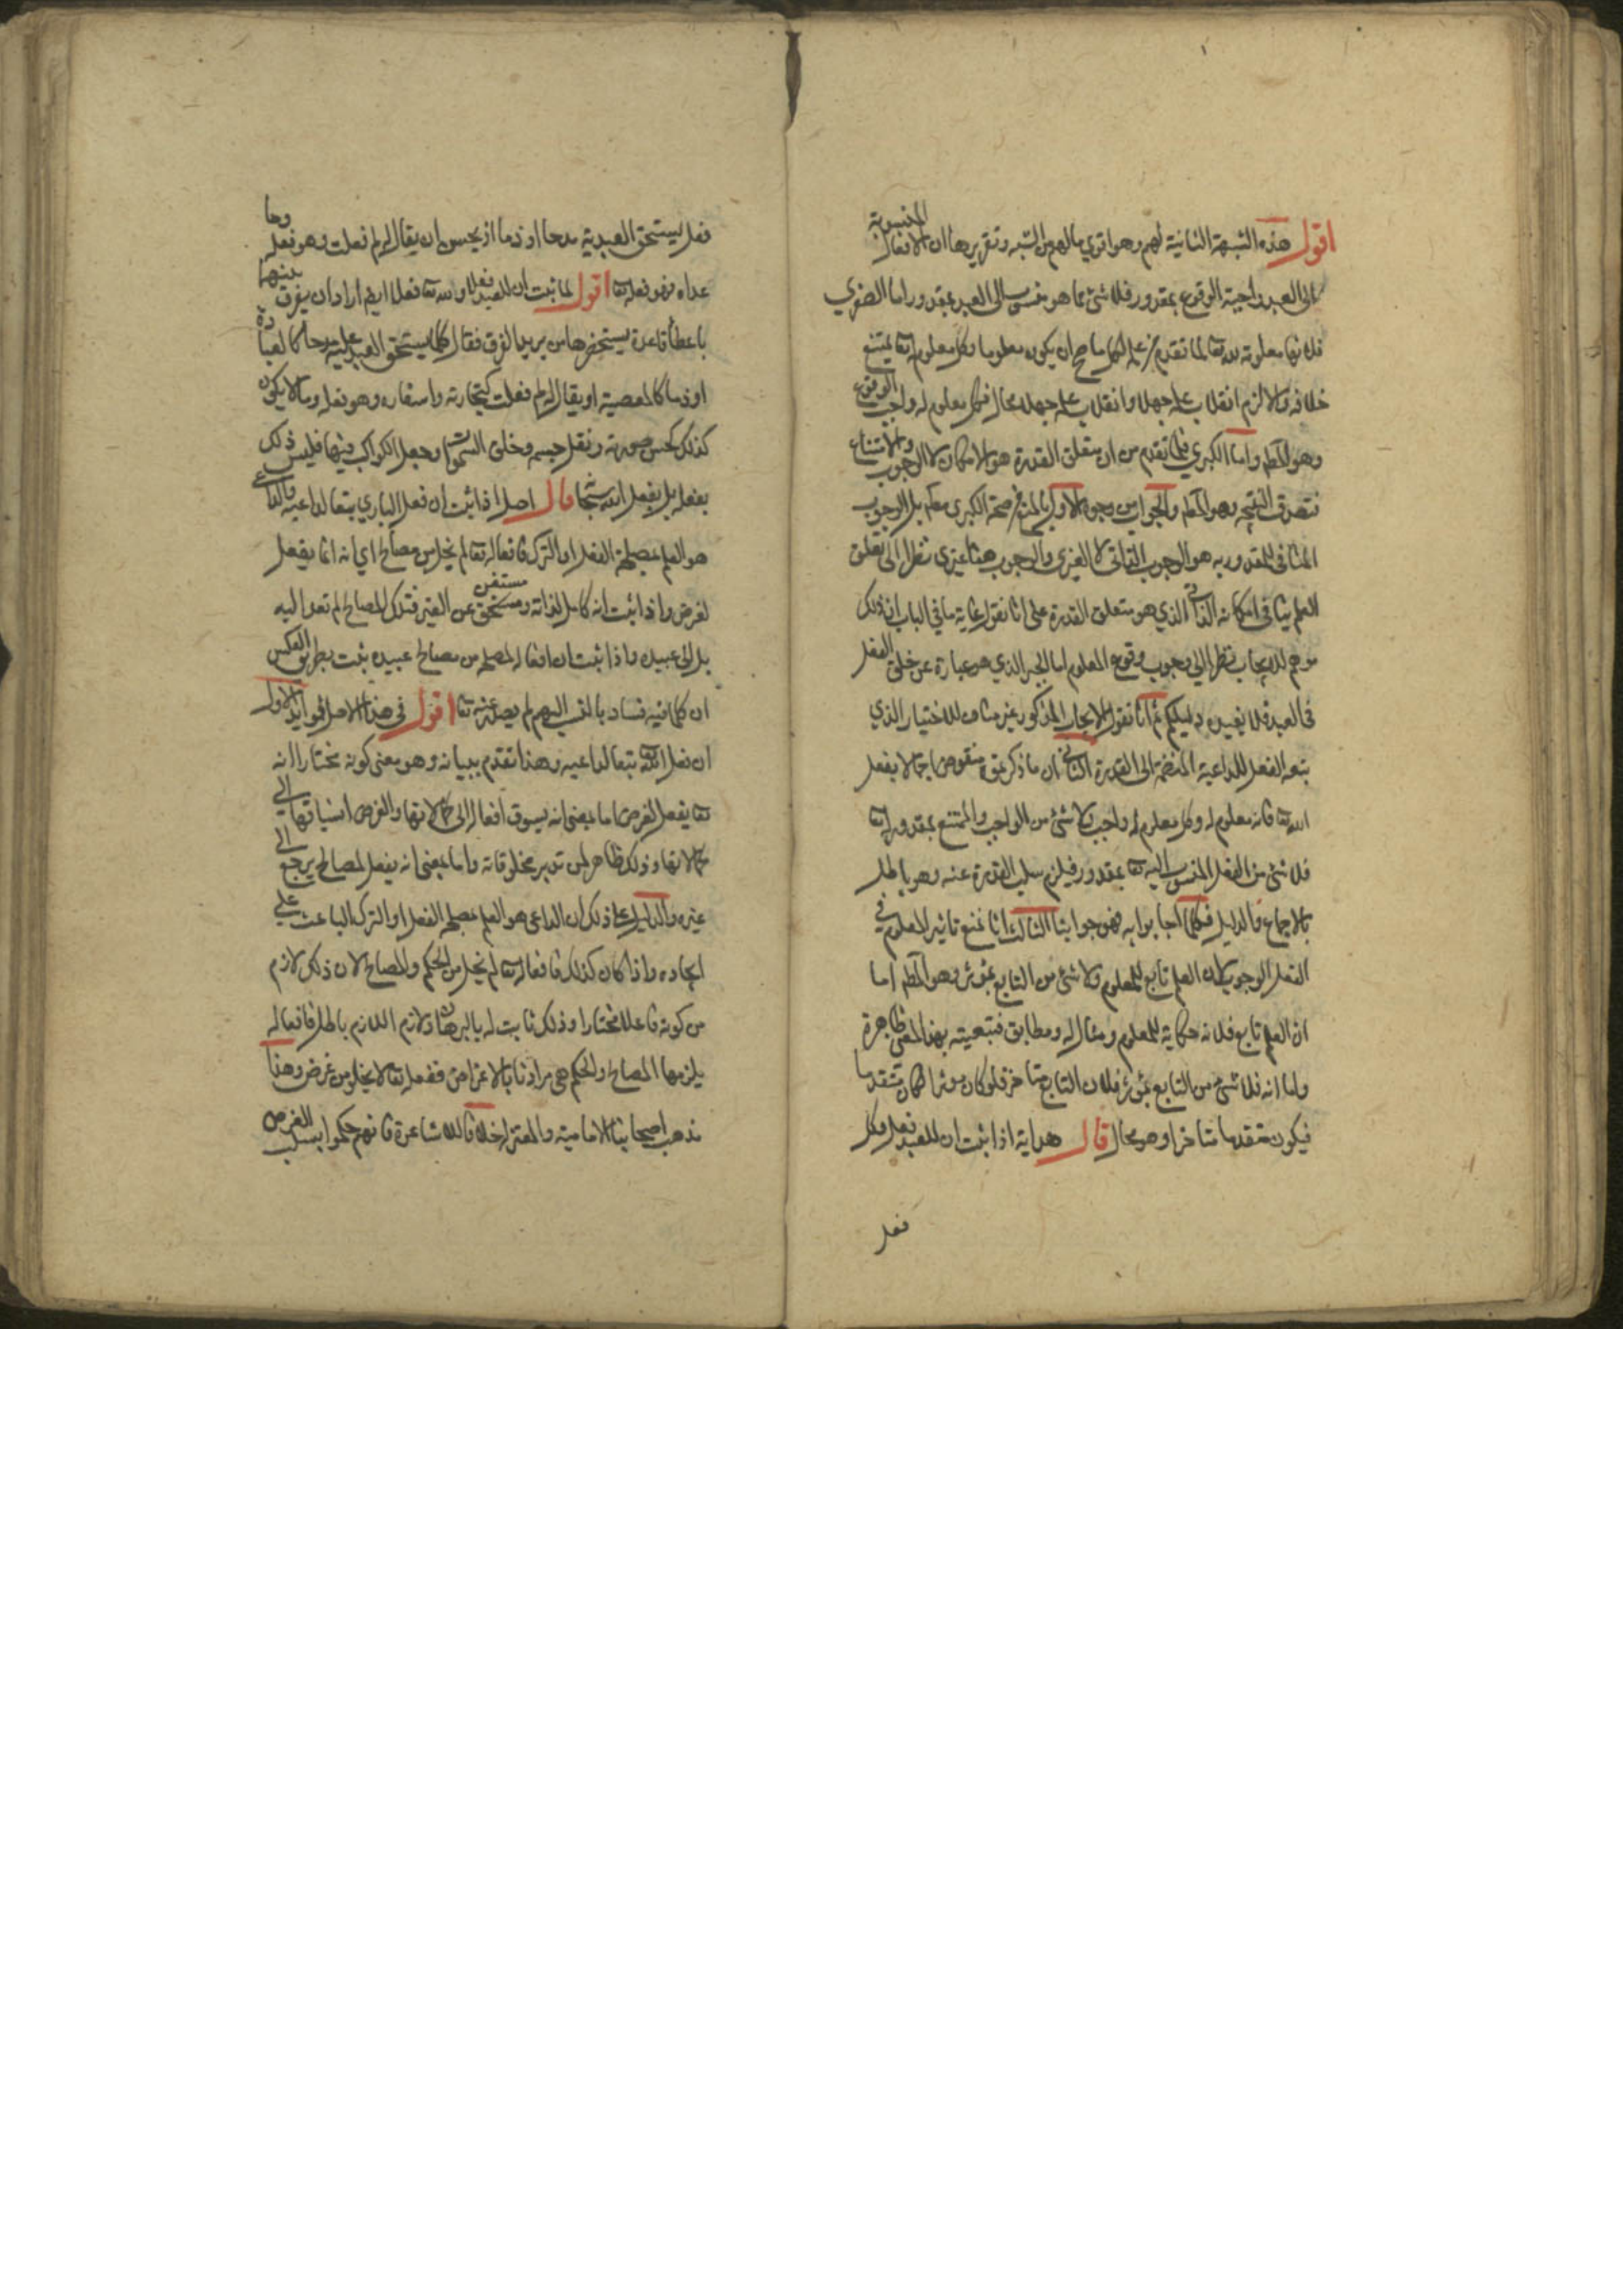 اقول هذه الشبهة الثانية لهم وهو اقوي مالهم من الشبه وتقريرها ان الافعال المنسوبة
الى العبد واجبة الوقوع بمقدور فلا شئ مما هو منسوب الى العبد بمقدور اما الصغري
فلانها معلومة لله تعا لما تقدم من علمه بكل ما صح ان يكون معلوما وكل معلوم له تعا يمتنع
خلافه والا لزم انقلاب علمه جهلا وانقلاب علمه جهلا محال فكل معلوم له واجب الوقوع
وهو المط واما الكبري فلما تقدم من ان متعلق القدرة هو الامكان لا الوجوب والامتناع
فتصدق النتيجه وهو المط والجواب من وجوه الاول بالمنع من صحة الكبرى مط بل الوجوب
المنافى للمقدوريه هو الوجوب الذاتى لا الغيرى والوجوب هنا غيرى نظرا الى تعلق
العلم ينافى امكانه الذاتى الذي هو متعلق القدرة على انا نقول غاية ما في الباب ان ذلك
موهم للايجاب نظرا الى وجوب وقوع المعلوم اما الجبر الذي هو عبارة عن خلق الفعل
فى العبد فلا يفيده دليلكم ثم انا نقول الايجاب المذكور غير مناف للاختيار الذي
يتبعه الفعل للداعية المنضمة الى القدرة الثانى ان ما ذكرتموه منقوض اجمالا بفعل
الله تعا فانه معلوم له وكل معلوم له واجب ولا شئ من الواجب والممتنع بمقدور له تعا
فلا شئ من الفعل المنسوب اليه تعا بمقدور فيلزم سلب القدرة عنه وهو باطل
بالاجماع والدليل فكلما اجابوا به فهو جوابنا الثالث انا نمنع تاثير المعلوم فى
الفعل الوجوب لان العلم تابع للمعلوم ولا شئ من التابع بمؤثر وهو المط اما
ان العلم تابع فلانه حكاية للمعلوم ومثال له ومطابق فتبعيته بهذا المعنى ظاهرة
واما انه فلا شئ من التابع بمؤثر فلان التابع متاخر فلو كان مؤثرا لكان متقدما
فيكون متقدما متاخرا وهو محال قال هداية اذا ثبت ان للعبد فعل فكل
فعل
فعل يستحق العبد به مدحا او ذما او يحسن ان يقال له لم فعلت وهو فعله وما
عداه فهو فعله تعا اقول لما ثبت ان للعبد فعلا ولله تعا فعلا ايضا اراد ان يفرق بينهما
باعطاء قاعدة يستحضرها من يريد الفرق فقال كلما يستحق العبد عليه مدحا كالعبادة
او ذما كالمعصية او يقال له لم فعلت كتجارته واسفاره وهو فعله وما لا يكون
كذلك كحسن صورته وثقل جسمه وخلق السموات وجعل الكواكب فيها فليس ذلك
بفعله بل بفعل الله سبحانه قال اصل اذا ثبت ان فعل الباري يتبع لداعيه والداعي
هو العلم بمصلحة الفعل او الترك فافعاله تعا لم يخل من مصالح اي انه انما يفعل
لغرض واذا ثبت انه كامل لذاته ومستغن عن الغير فتلك المصالح لم تعد اليه
بل الى عبيده واذا ثبت ان افعاله لمصلحه من مصالح عبيده ثبت بطريق العكس
ان كلما فيه فساد بالنسبة اليهم لم يصدر عنه تعا اقول فى هذا الاصل فوايد الاول
ان فعل الله تعا يتبع لداعيه وهذا تقدم بيانه وهو معنى كونه مختارا انه
تعا يفعل لغرض اما بمعنى انه يسوق افعاله الى كمالاتها والغرض انسياقها الى
كمالاتها وذلك ظاهر لمن تدبر مخلوقاته واما بمعنى انه يفعل لمصالح يرجع الى
غيره والدليل على ذلك ان الداعى هو العلم بمصلحة الفعل او الترك الباعث على
ايجاده واذا كان كذلك فافعاله تعا لم يخل من الحكم والمصالح لان ذلك لازم
من كونه فاعلا مختارا وذلك ثابت له بالبرهان ولازم اللازم باطل فافعاله
يلزمها المصالح والحكم هى مرادنا بالاغراض ففعله تعا لا يخلو من غرض وهذا
مذهب اصحابنا الامامية والمعتزلة خلافا للاشاعرة فانهم حكموا بسلب الغرض